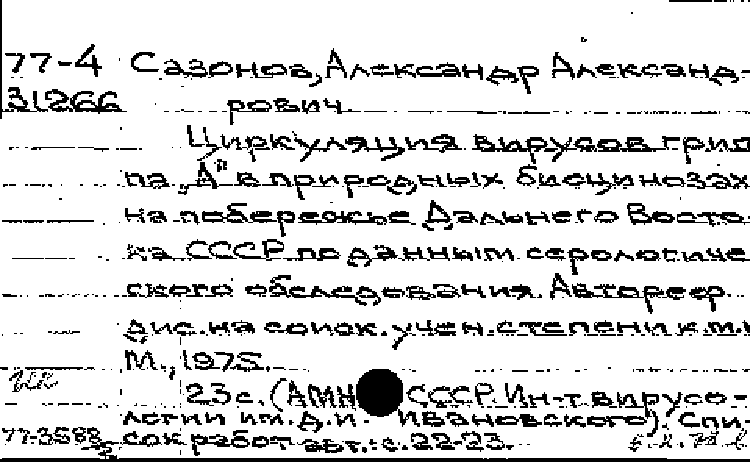 77-4 Сазонов, Александр Александ-
31266 рович.
Циркуляция вирусов грип
па „А" в природных биоцинозах
на побережье Дальнего Восто-
ка СССР по данным серологиче
ского обследования. Автореф.
дис. на соиск. учен. степени к.м.н
М., 1975.
23 с. (АМН СССР. Ин-т вирусо-
логии им. Д.И. Ивановского). Спи-
77-3588 сок работ авт.: с. 22-23.